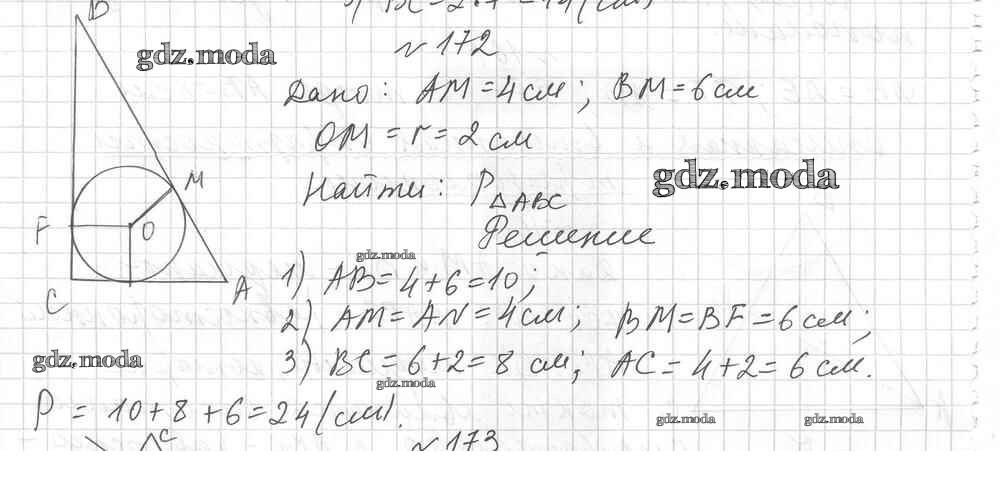 3) BC = 2 · 7 = 14 (см)
№ 172
B
gdz.moda
Дано: AM = 4 см; BM = 6 см
OM = r = 2 см
gdz.moda
Найти: P△ABC
M
F
O
Решение
gdz.moda
C
A
1) AB = 4 + 6 = 10;
2) AM = AN = 4 см; BM = BF = 6 см;
gdz.moda
3) BC = 6 + 2 = 8 см; AC = 4 + 2 = 6 см.
gdz.moda
P = 10 + 8 + 6 = 24 (см).
gdz.moda
gdz.moda
C
№ 173